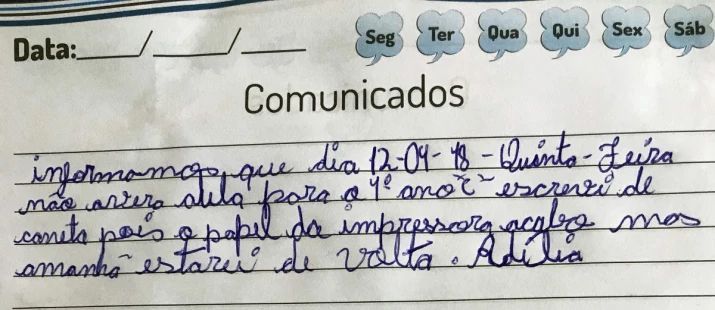 Data:____/____/____ Seg Ter Qua Qui Sex Sáb
Comunicados
informamos, que dia 12-04-18 - Quinta-Feira
não avera aula para o 4º ano "C" escrevi de
caneta pois o papel da impressora acabo mas
amanhã estarei de volta. Adília